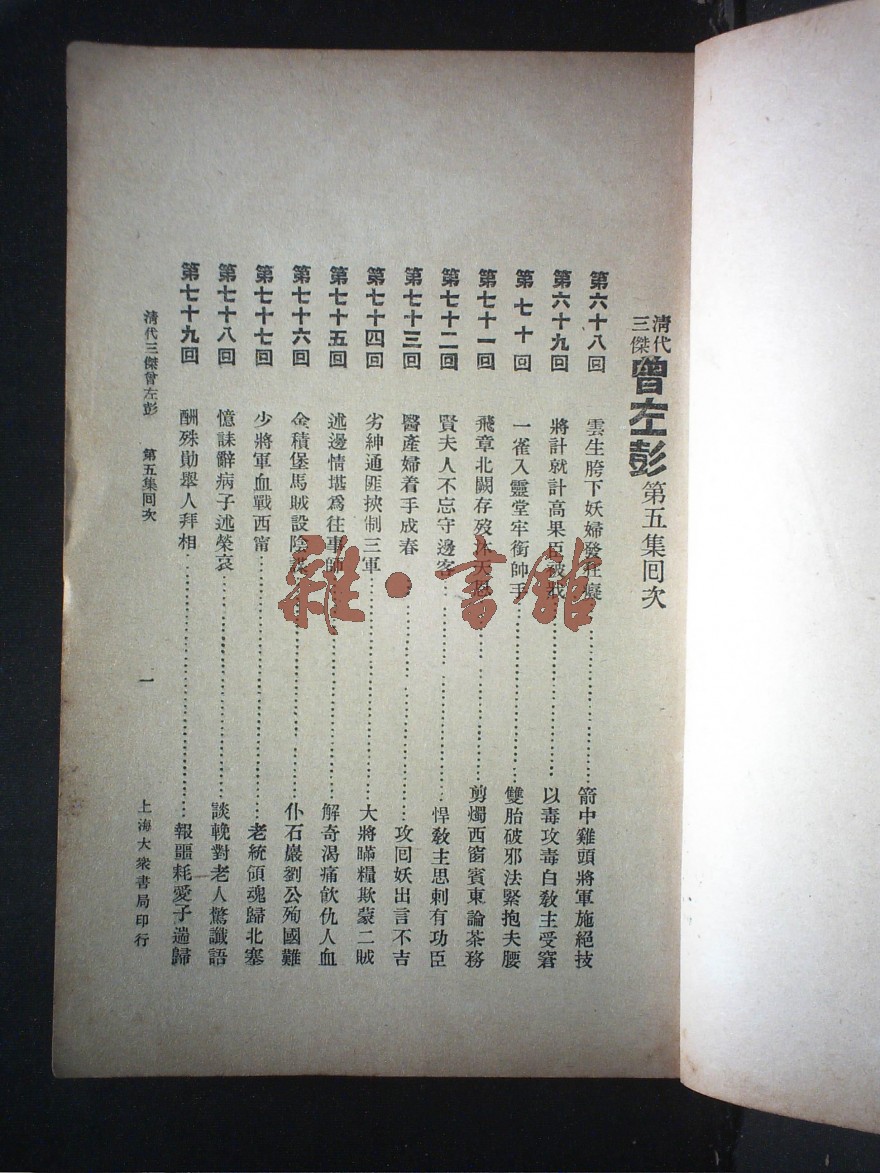 清代三傑曾左彭第五集回次
第六十八回 雲生胯下妖婦發狂癡 箭中雞頭將軍施絕技
第六十九回 將計就計高果臣被戕 以毒攻毒白教主受窘
第七十回 一雀入靈堂牢銜帥手 雙胎破邪法緊抱夫腰
第七十一回 飛章北闕存歿沐天恩 剪燭西窗賓東論茶務
第七十二回 賢夫人不忘守邊客 悍教主思刺有功臣
第七十三回 醫產婦着手成春 攻回妖出言不吉
第七十四回 劣紳通匪挾制三軍 大將瞞糧欺蒙二賊
第七十五回 述邊情堪爲往事師 解奇渴痛飲仇人血
第七十六回 金積堡馬賊設陰謀 仆石巖劉公殉國難
第七十七回 少將軍血戰西甯 老統領魂歸北塞
第七十八回 憶誄辭病子述榮哀 談輓對老人驚讖語
第七十九回 酬殊勛舉人拜相 報噩耗愛子遄歸
清代三傑曾左彭 第五集回次 一 上海大衆書局印行
雜·書館